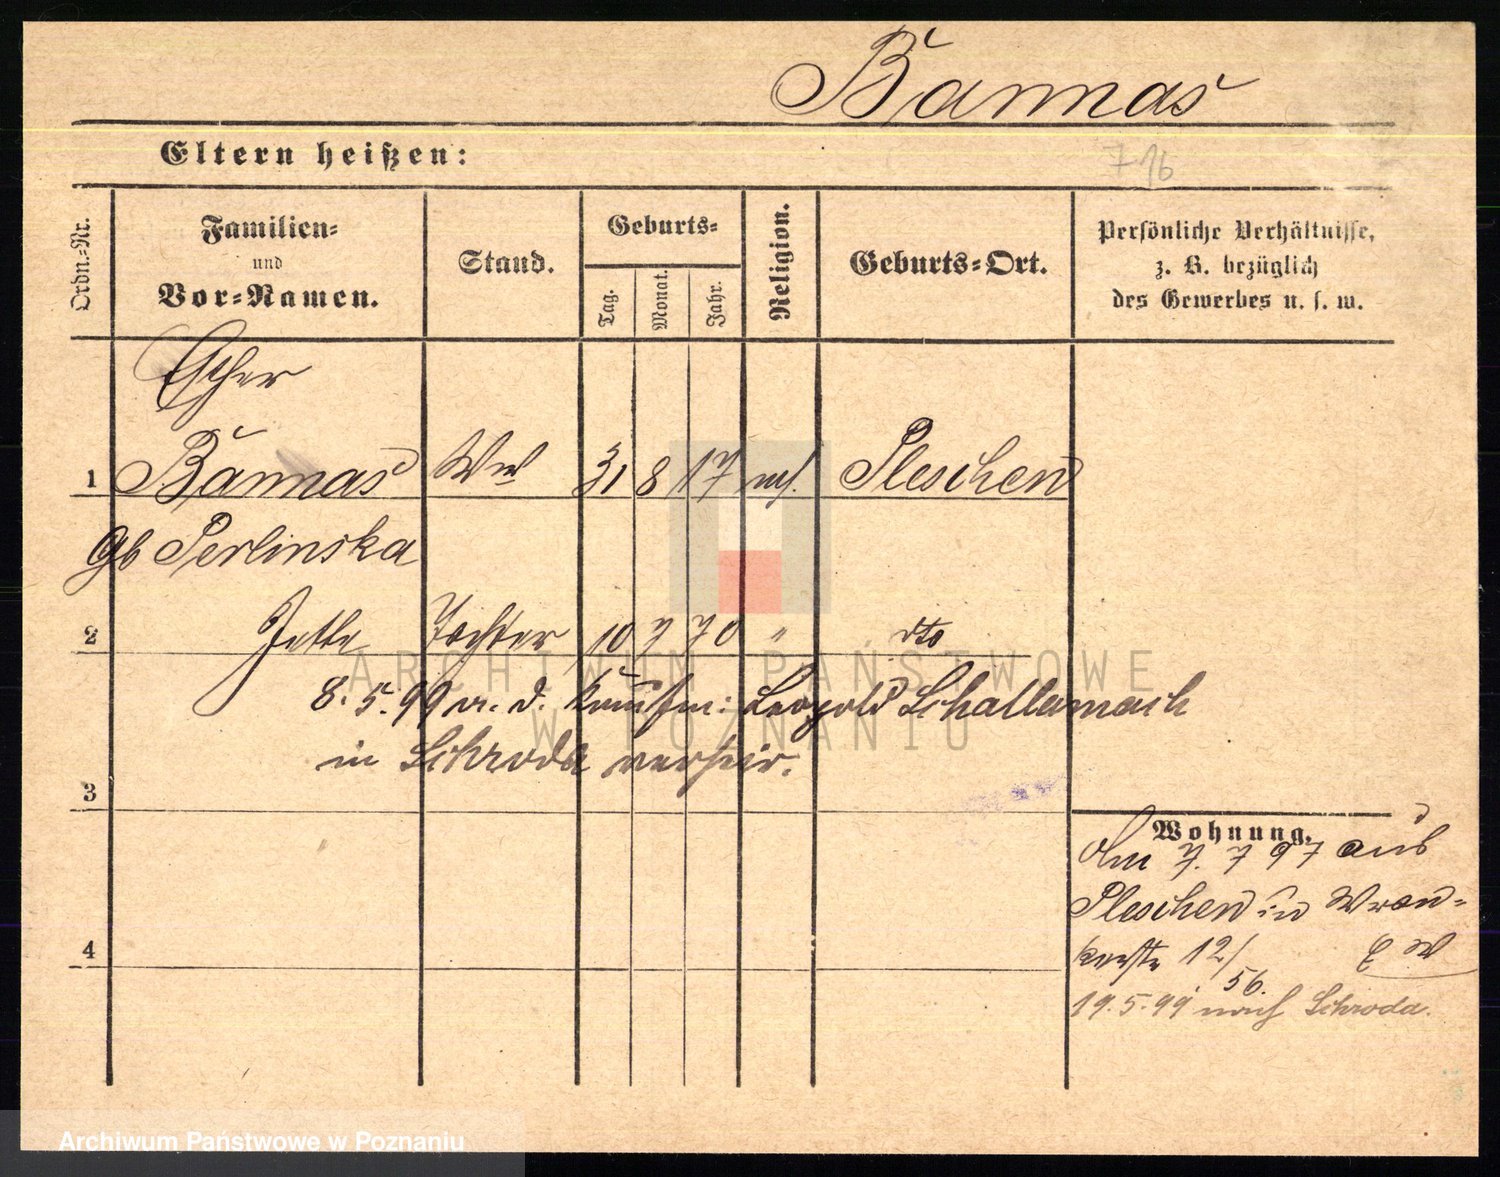 Bannas
Eltern heißen:
7 16
Ordn.-Nr.
Familien-
und
Vor-Namen.
Stand.
Geburts-
Tag.
Monat.
Jahr.
Religion.
Geburts-Ort.
Persönliche Verhältnisse,
z. B. bezüglich
des Gewerbes u. s. w.
Esther
1 Bannas Ww 31 8 17 mos. Pleschen
gb Perlinska
2 Jette Tochter 10 7 70 " dto
8.5.99 m. d. Kaufm: Leopold Schallamach
in Schroda verheir.
3
Wohnung.
Am 7. 7 97 aus
Pleschen in Wron-
4
kerstr 12/ E W
56.
19.5.99 nach Schroda.
ARCHIWUM PAŃSTWOWE
W POZNANIU
Archiwum Państwowe w Poznaniu